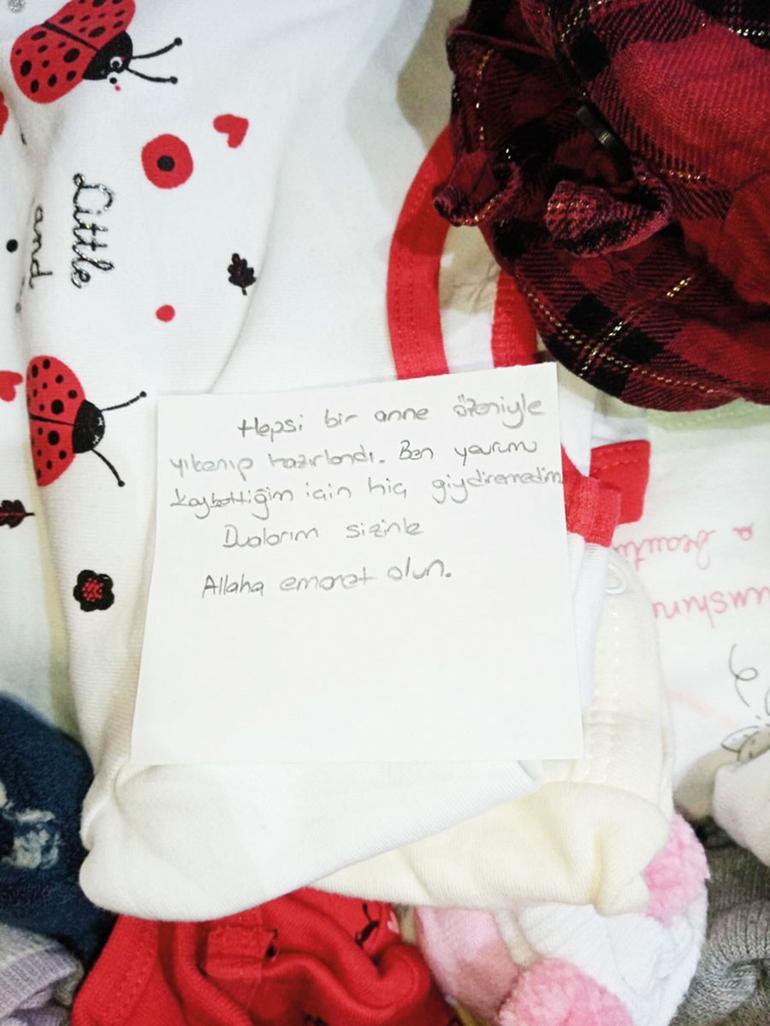 Little
and
Hepsi bir anne özeniyle
yıkanıp hazırlandı. Ben yavrum
kaybettiğim için hiç giydiremedim
Dualarım sizinle
Allaha emanet olun.
a beauti
unshine